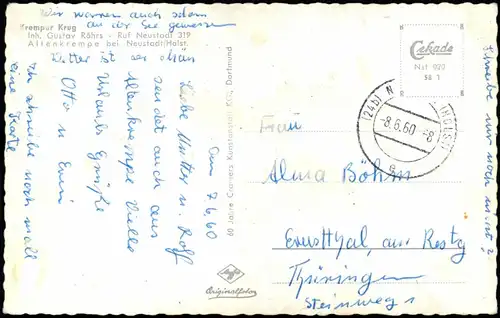 Wir warren auch schon
an der See gewesen
Kremper Krug
Inh. Gustav Röhrs - Ruf Neustadt 319
Altenkrempe bei Neustadt/Holst.
Wetter ist er schön
Am 7.6.60
Liebe Mutter u. Rolf
sendet auch aus
Altenkrempe viele
Urlaubs Grüße
Otto u Erni
Ich schreibe noch mall
eine Karte
60 Jahre Cramers Kunstanstalt KG., Dortmund
Cekade
Nst 920
58 1
(24b) N (HOLST)
-8.6.60 -8
a
Frau
Alma Böhm
Ernstthal, am Restg
Thüringen
Steinweg 1
Agfa
Originalfoto
Schreibe nur noch nicht